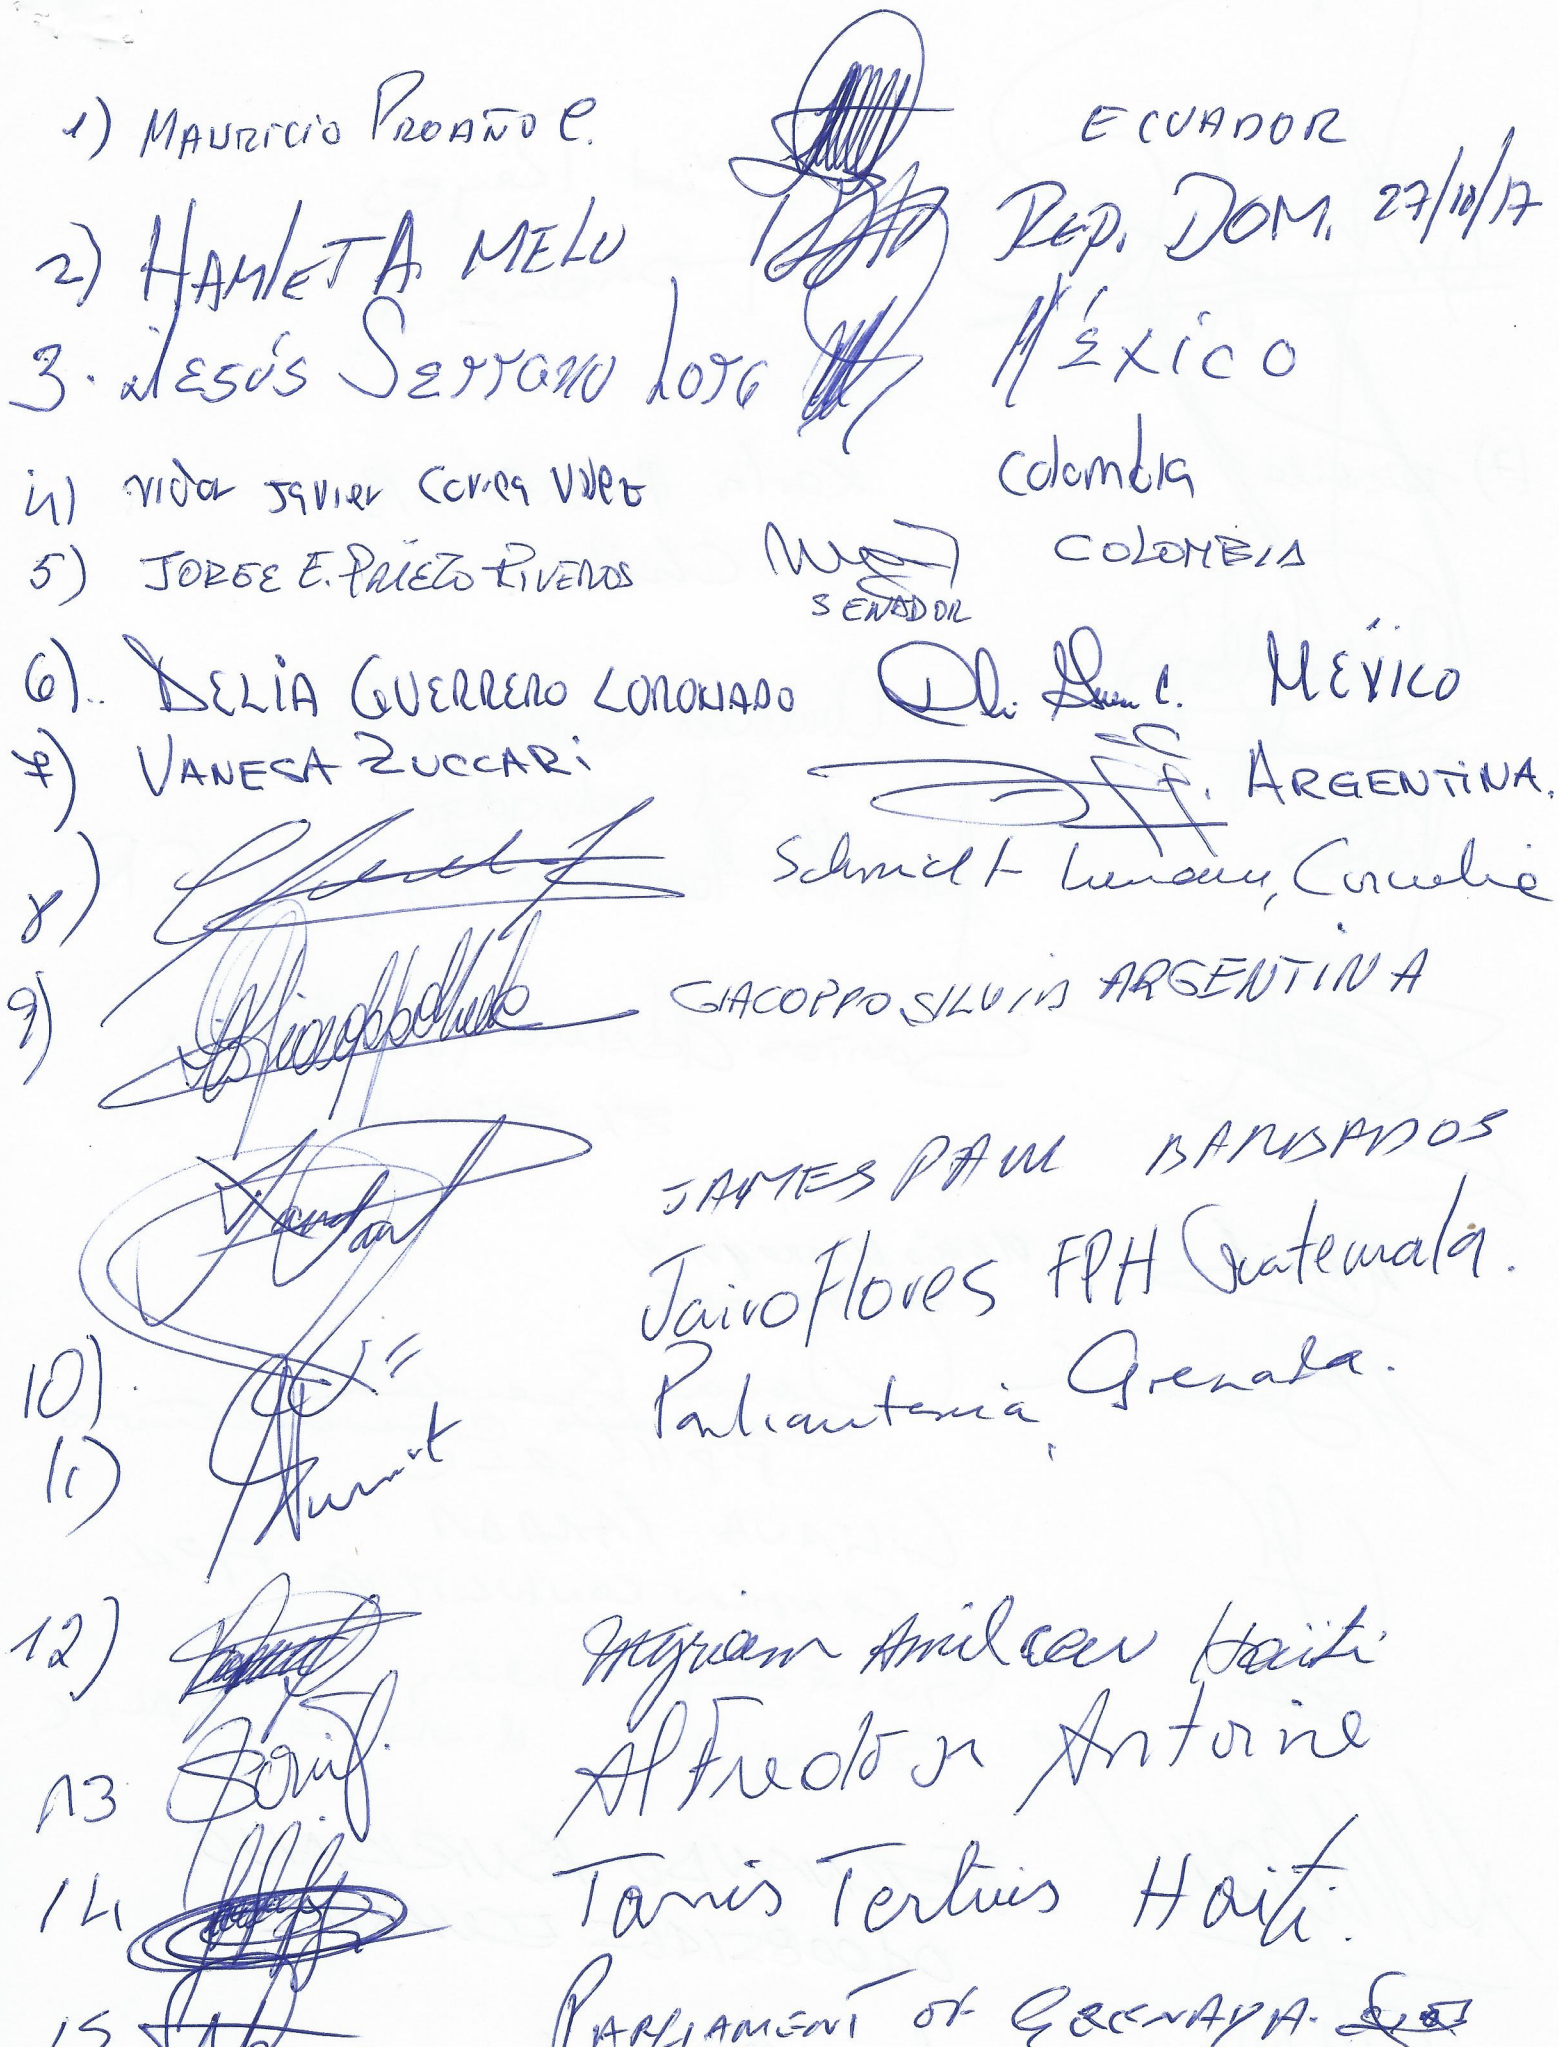 1) MAURICIO PROAÑO C. ECUADOR
2) HAMLET A. MELO REP. DOM. 27/10/17
3. JESÚS SERRANO LORA MÉXICO
4) Javier Correa Colombia
5) JORGE E. PRIETO RIVEROS COLOMBIA
SENADOR
6).. DELIA GUERRERO CORONADO MÉXICO
7) VANESA ZUCCARI ARGENTINA.
8) Schmidt Liermann, Cornelia
9) GIACOPPO SILVIA ARGENTINA
JAMES PAUL BARBADOS
Jairo Flores FPH Guatemala.
10).
Grenada.
11)
12) Myriam Amilcar Haïti
13 Alfredo Jr Antoine
14 Tanis Tertius Haïti.
15 PARLIAMENT OF GRENADA.